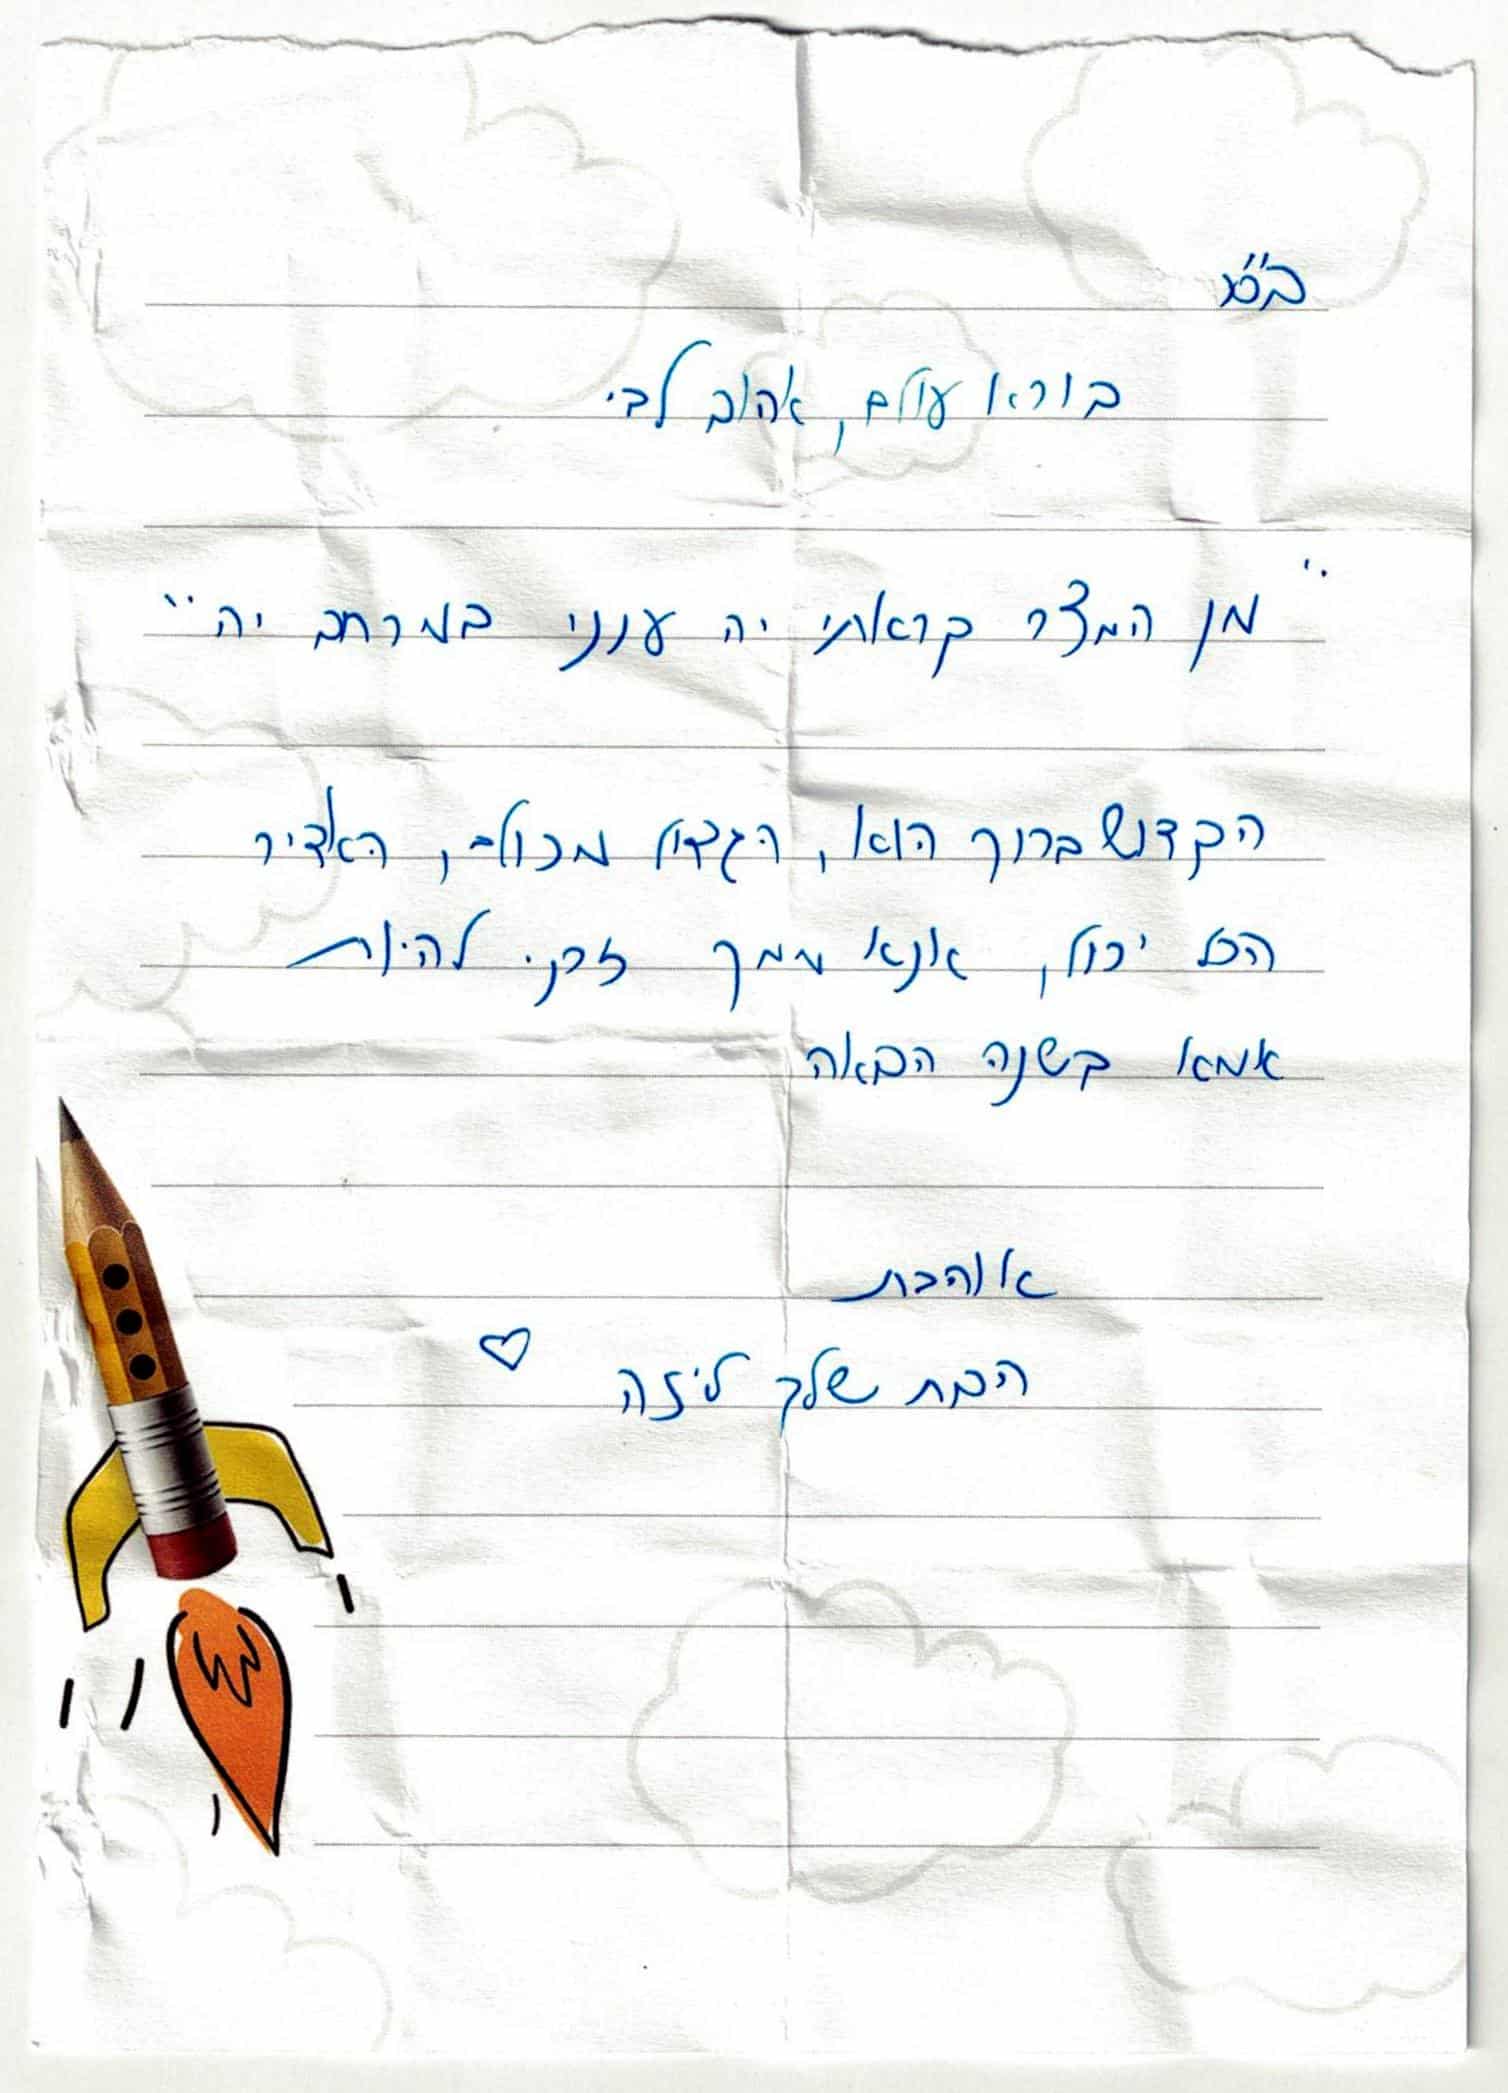 בס"ט
בורא עולם, אהוב לבי
"מן המצר קראתי יה ענני במרחב יה"
הקדוש ברוך הוא, הגדול מכולם, האדיר
הכל יכול, אנא ממך זכני להיות
אמא בשנה הבאה
אוהבת
הבת שלך ליזה